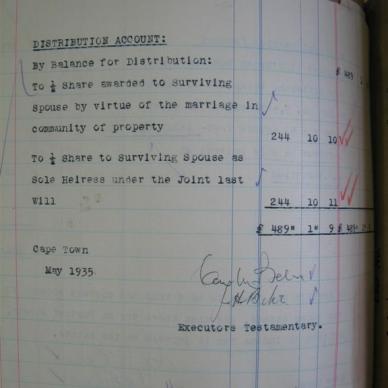 DISTRIBUTION ACCOUNT:
By Balance for Distribution:
£ 489
To ½ Share awarded to Surviving
Spouse by virtue of the marriage in
community of property 244 10 10
To ½ Share to Surviving Spouse as
Sole Heiress under the Joint last
Will 244 10 11
£ 489" 1" 9 £ 489"
Cape Town
May 1935.
Executors Testamentary.